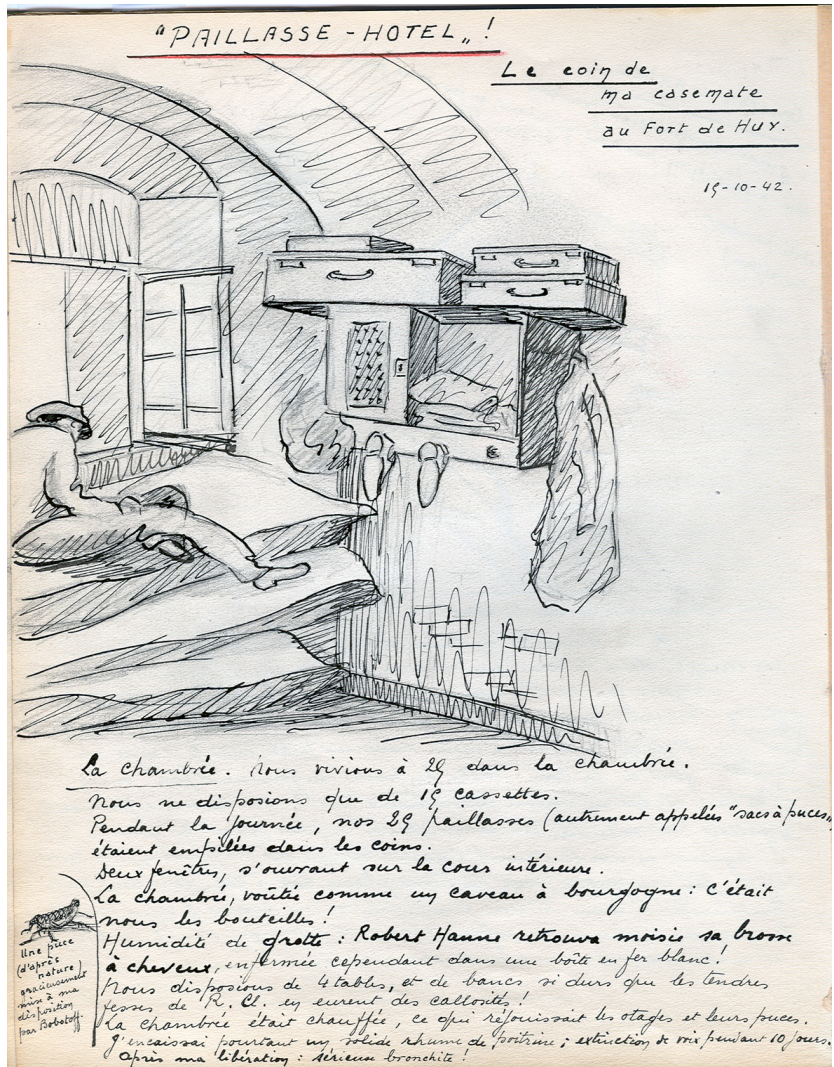 "PAILLASSE - HOTEL„!
Le coin de
ma casemate
au Fort de Huy.
19-10-42.
La chambrée. Nous vivions à 29 dans la chambrée.
Nous ne disposions que de 19 cassettes.
Pendant la journée, nos 29 paillasses (autrement appelées "sacs à puces„
étaient empilées dans les coins.
Deux fenêtres, s'ouvrant sur la cour intérieure.
La chambrée, voûtée comme un caveau à bourgogne : c'était
nous les bouteilles !
Humidité de grotte : Robert Hanne retrouva moisie sa brosse
à cheveux, enfermée cependant dans une boîte en fer blanc !
Nous disposions de 4 tables, et de bancs si durs que les tendres
fesses de R. Cl. en eurent des callosités !
La chambrée était chauffée, ce qui réjouissait les otages et leurs puces.
J'encaissai pourtant un solide rhume de poitrine ; extinction de voix pendant 10 jours.
Après ma libération : sérieuse bronchite !
Une puce
(d'après
nature)
gracieusement
mise à ma
disposition
par Bobotoff.